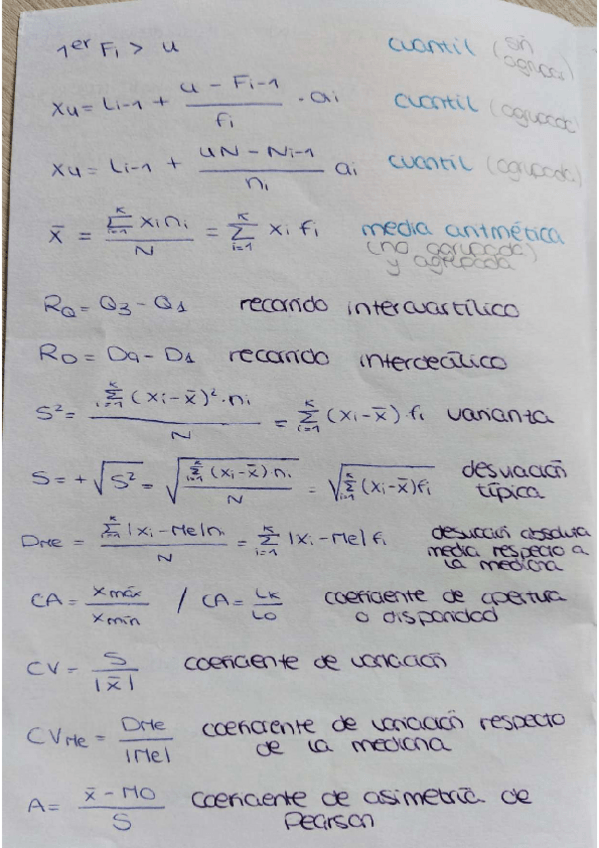 1er Fi > u cuantil (sin agrupar)
xu = Li-1 + (u - Fi-1)/fi · ai cuantil (agrupada)
xu = Li-1 + (uN - Ni-1)/ni ai cuantil (agrupada)
x̄ = Σ(i=1..K) xi ni / N = Σ(i=1..K) xi fi media aritmética
(no agrupada)
y agrupada
RQ = Q3 - Q1 recorrido intercuartílico
RD = D9 - D1 recorrido interdecílico
S² = Σ(i=1..K) (xi - x̄)² · ni / N = Σ(i=1..K) (xi - x̄) fi varianza
S = + √S² = √(Σ(i=1..K) (xi - x̄) ni / N) = √(Σ(i=1..K) (xi - x̄) fi) desviación
típica
DMe = Σ(i=1..K) |xi - Me| ni / N = Σ(i=1..K) |xi - Me| fi desviación absoluta
media respecto a
la mediana
CA = xmáx / xmín / CA = LK / L0 coeficiente de apertura
o disparidad
CV = S / |x̄| coeficiente de variación
CVMe = DMe / |Me| coeficiente de variación respecto
de la mediana
A = (x̄ - MO) / S coeficiente de asimetría de
Pearson